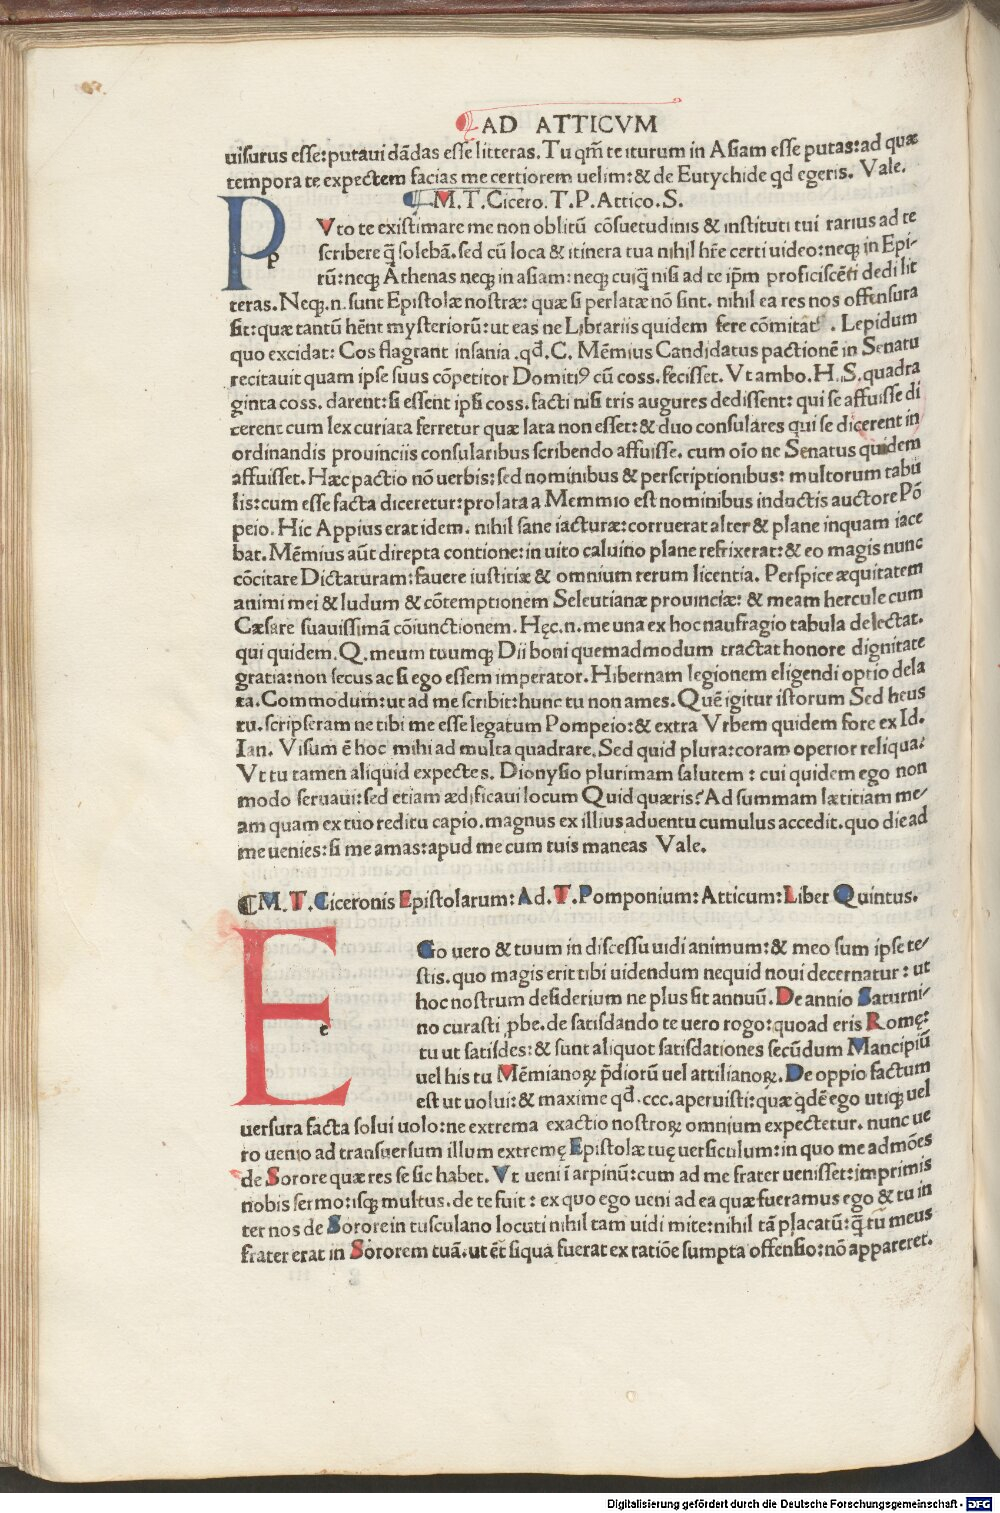 AD ATTICVM
uisurus esse: putaui dādas esse litteras. Tu qm̄ te iturum in Asiam esse putas: ad quæ
tempora te expectem facias me certiorem uelim: & de Eutychide qd egeris. Vale.
M. T. Cicero. T. P. Attico. S.
P Vto te existimare me non oblitū cōsuetudinis & instituti tui rarius ad te
p scribere q̄ solebā. sed cū loca & itinera tua nihil hr̄e certi uideo: neqȝ in Epi-
rū: neqȝ Athenas neqȝ in asiam: neqȝ cuiq̄ nisi ad te ip̄m proficiscēti dedi lit
teras. Neqȝ .n. sunt Epistolæ nostræ: quæ si perlatæ nō sint. nihil ea res nos offensura
sit: quæ tantū hēnt mysteriorū: ut eas ne Librariis quidem fere cōmitat . Lepidum
quo excidat: Cos flagrant insania .qđ. C. Mēmius Candidatus pactionē in Senatu
recitauit quam ipse suus cōpetitor Domiti9 cū coss. fecisset. Vt ambo. H. S. quadra
ginta coss. darent: si essent ipsi coss. facti nisi tris augures dedissent: qui se affuisse di
cerent cum lex curiata ferretur quæ lata non esset: & duo consulares qui se dicerent in
ordinandis prouinciis consularibus scribendo affuisse. cum oīo ne Senatus quidem
affuisset. Hæc pactio nō uerbis: sed nominibus & perscriptionibus: multorum tabu
lis: cum esse facta diceretur: prolata a Memmio est nominibus inductis auctore Pō
peio. Hic Appius erat idem. nihil sane iacturæ: corruerat alter & plane inquam iace
bat. Mēmius aūt direpta contione: in uito caluino plane refrixerat: & eo magis nunc
cōcitare Dictaturam: fauere iustitiæ & omnium rerum licentia. Perspice æquitatem
animi mei & ludum & cōtemptionem Seleutianæ prouinciæ: & meam hercule cum
Cæsare suauissimā cōiunctionem. Hęc .n. me una ex hoc naufragio tabula delectat.
qui quidem. Q. meum tuumqȝ Dii boni quemadmodum tractat honore dignitate
gratia: non secus ac si ego essem imperator. Hibernam legionem eligendi optio dela
ta. Commodum: ut ad me scribit: hunc tu non ames. Quē igitur istorum Sed heus
tu. scripseram ne tibi me esse legatum Pompeio: & extra Vrbem quidem fore ex Id.
Ian. Visum ē hoc mihi ad multa quadrare. Sed quid plura: coram operior reliqua:
Vt tu tamen aliquid expectes. Dionysio plurimam salutem: cui quidem ego non
modo seruaui: sed etiam ædificaui locum Quid quæris? Ad summam lætitiam me/
am quam ex tuo reditu capio. magnus ex illius aduentu cumulus accedit. quo die ad
me uenies: si me amas: apud me cum tuis maneas Vale.
M. T. Ciceronis Epistolarum: Ad. T. Pomponium: Atticum: Liber Quintus.
E Go uero & tuum in discessu uidi animum: & meo sum ipse te/
stis. quo magis erit tibi uidendum nequid noui decernatur: ut
hoc nostrum desiderium ne plus sit annuū. De annio Saturni/
e no curasti ꝓbe. de satisdando te uero rogo: quoad eris Romę:
tu ut satisdes: & sunt aliquot satisdationes secūdum Mancipiū
uel his tu Mēmianoꝝ p̄diorū uel attilianoꝝ. De oppio factum
est ut uolui: & maxime qđ .ccc. aperuisti: quæ q̇dē ego utiqȝ uel
uersura facta solui uolo: ne extrema exactio nostroꝝ omnium expectetur. nunc ue
ro uenio ad transuersum illum extremę Epistolæ tuę uersiculum: in quo me admōes
de Sorore quæ res se sic habet. Vt ueni ī arpinū: cum ad me frater uenisset: imprimis
nobis sermo: isqȝ multus. de te fuit: ex quo ego ueni ad ea quæ fueramus ego & tu in
ter nos de Sorore in tusculano locuti nihil tam uidi mite: nihil tā placatū: q̄ tū meus
frater erat in Sororem tuā. ut ēt siqua fuerat ex ratiōe sumpta offensio: nō appareret.
Digitalisierung gefördert durch die Deutsche Forschungsgemeinschaft - DFG